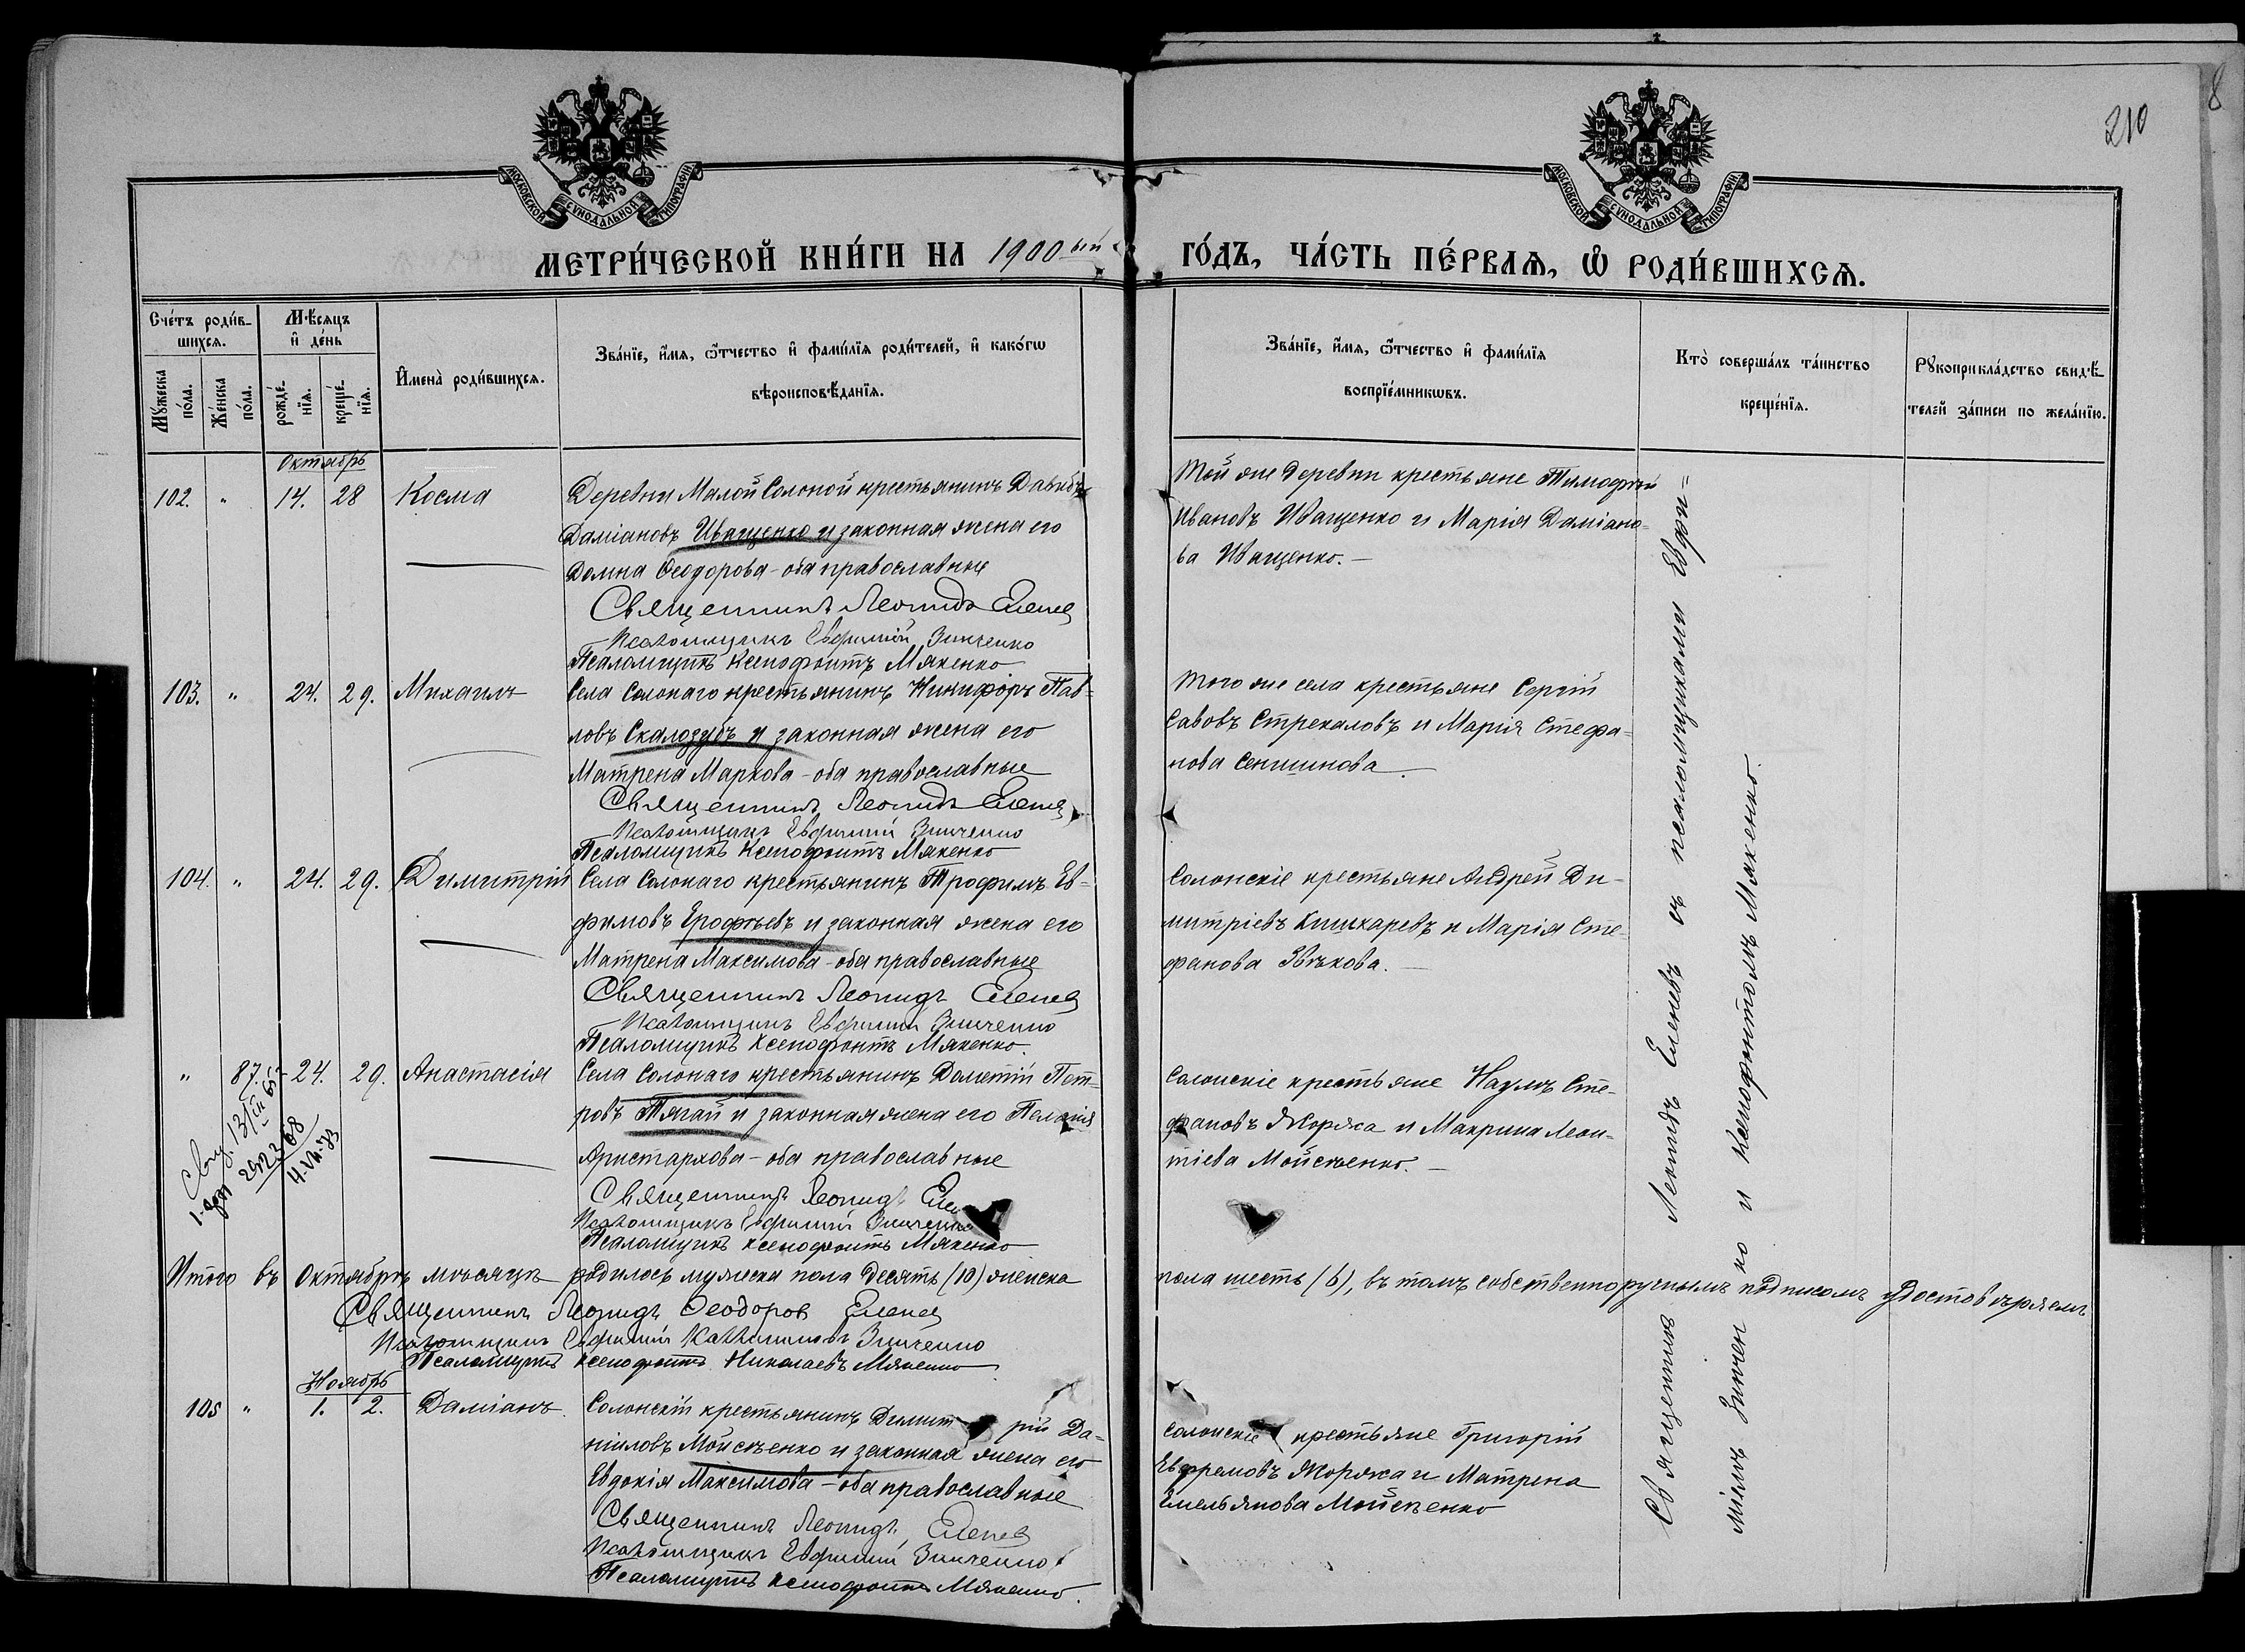 210
8
МОСКОВСКОЙ СѴНОДАЛЬНОЙ ТИПОГРАФІИ
МОСКОВСКОЙ СѴНОДАЛЬНОЙ ТИПОГРАФІИ
МЕТРИ́ЧЕСКОЙ КНИ́ГИ НА 1900ый ГО́ДЪ, ЧА́СТЬ ПЕ́РВАѦ, Ѡ РОДИ́ВШИХСѦ.
Сче́тъ роди́в-
шихся.
Мѣ́сяцъ
и҆ де́нь
Мꙋ́жеска по́ла.
Же́нска по́ла.
рожде́-
нїя.
креще́-
нїя.
И҆мена̀ роди́вшихся.
Зва́нїе, и҆́мя, ѻ҆́тчество и҆ фами́лїя роди́телей, и҆ како́гѡ
вѣроисповѣ́данїя.
Зва́нїе, и҆́мя, ѻ҆́тчество и҆ фами́лїя
воспрїе́мникѡвъ.
Кто̀ соверша́лъ та́инство
креще́нїя.
Рꙋкоприкла́дство свидѣ́-
телей за́писи по жела́нїю.
Октябрь
102. " 14. 28 Косма
Деревни Малой Солоной крестьянинъ Давидъ
Даміановъ Иващенко и законная жена его
Домна Ѳеодорова - оба православные
Священникъ Леонидъ Еленев
Псаломщикъ Евфимій Зинченко
Псаломщикъ Ксенофонтъ Мякенко
Той же деревни крестьяне Тимофей
Ивановъ Иващенко и Марія Даміано-
ва Иващенко. —
103. " 24. 29. Михаилъ
Села Солонаго крестьянинъ Никифоръ Пав-
ловъ Скалозубъ и законная жена его
Матрена Маркова - оба православные
Священникъ Леонидъ Еленев
Псаломщикъ Евфимій Зинченко
Псаломщикъ Ксенофонтъ Мякенко
Того же села крестьяне Сергій
Савовъ Стрекаловъ и Марія Стефа-
нова Сеншинова
104. " 24. 29. Димитрій
Села Солонаго крестьянинъ Трофимъ Ев-
фимовъ Ерофѣевъ и законная жена его
Матрена Максимова - оба православные
Священникъ Леонидъ Еленев
Псаломщикъ Евфимій Зинченко
Псаломщикъ Ксенофонтъ Мякенко.
Солонскіе крестьяне Андрей Ди-
митріевъ Кишкаревъ и Марія Сте-
фанова Звѣкова. —
" 87. 24. 29. Анастасія
Села Солонаго крестьянинъ Дометій Пет-
ровъ Тягай и законная жена его Пелагія
Аристархова - оба православные
Священникъ Леонидъ
Псаломщикъ Евфимій Зинченко
Псаломщикъ Ксенофонтъ Мякенко
Солонскіе крестьяне Наумъ Сте-
фановъ Жоржа и Макрина Леон-
тіева Мойсѣенко. —
Итого въ Октябрѣ мѣсяцѣ родилось мужеска пола десять (10) женска пола шесть (6), въ томъ собственноручнымъ подписомъ удостовѣряемъ
Священникъ Леонидъ Ѳеодоров Еленев
Псаломщикъ Евфимій Зинченко
Псаломщикъ Ксенофонтъ Николаевъ Мякенко
Ноябрь
105 " 1. 2. Даміанъ.
Солонскій крестьянинъ Димитрій Да-
ніиловъ Мойсѣенко и законная жена его
Евдокія Максимова - оба православные
Священникъ Леонидъ Еленев
Псаломщикъ Евфимій Зинченко
Псаломщикъ Ксенофонтъ Мякенко.
Солонскіе крестьяне Григорій
Евфремовъ Жоржа и Матрена
Емельянова Мойсѣенко
Священникъ Леонидъ Еленевъ съ псаломщиками Евфи=
міемъ Зинченко и Ксенофонтомъ Мякенко.